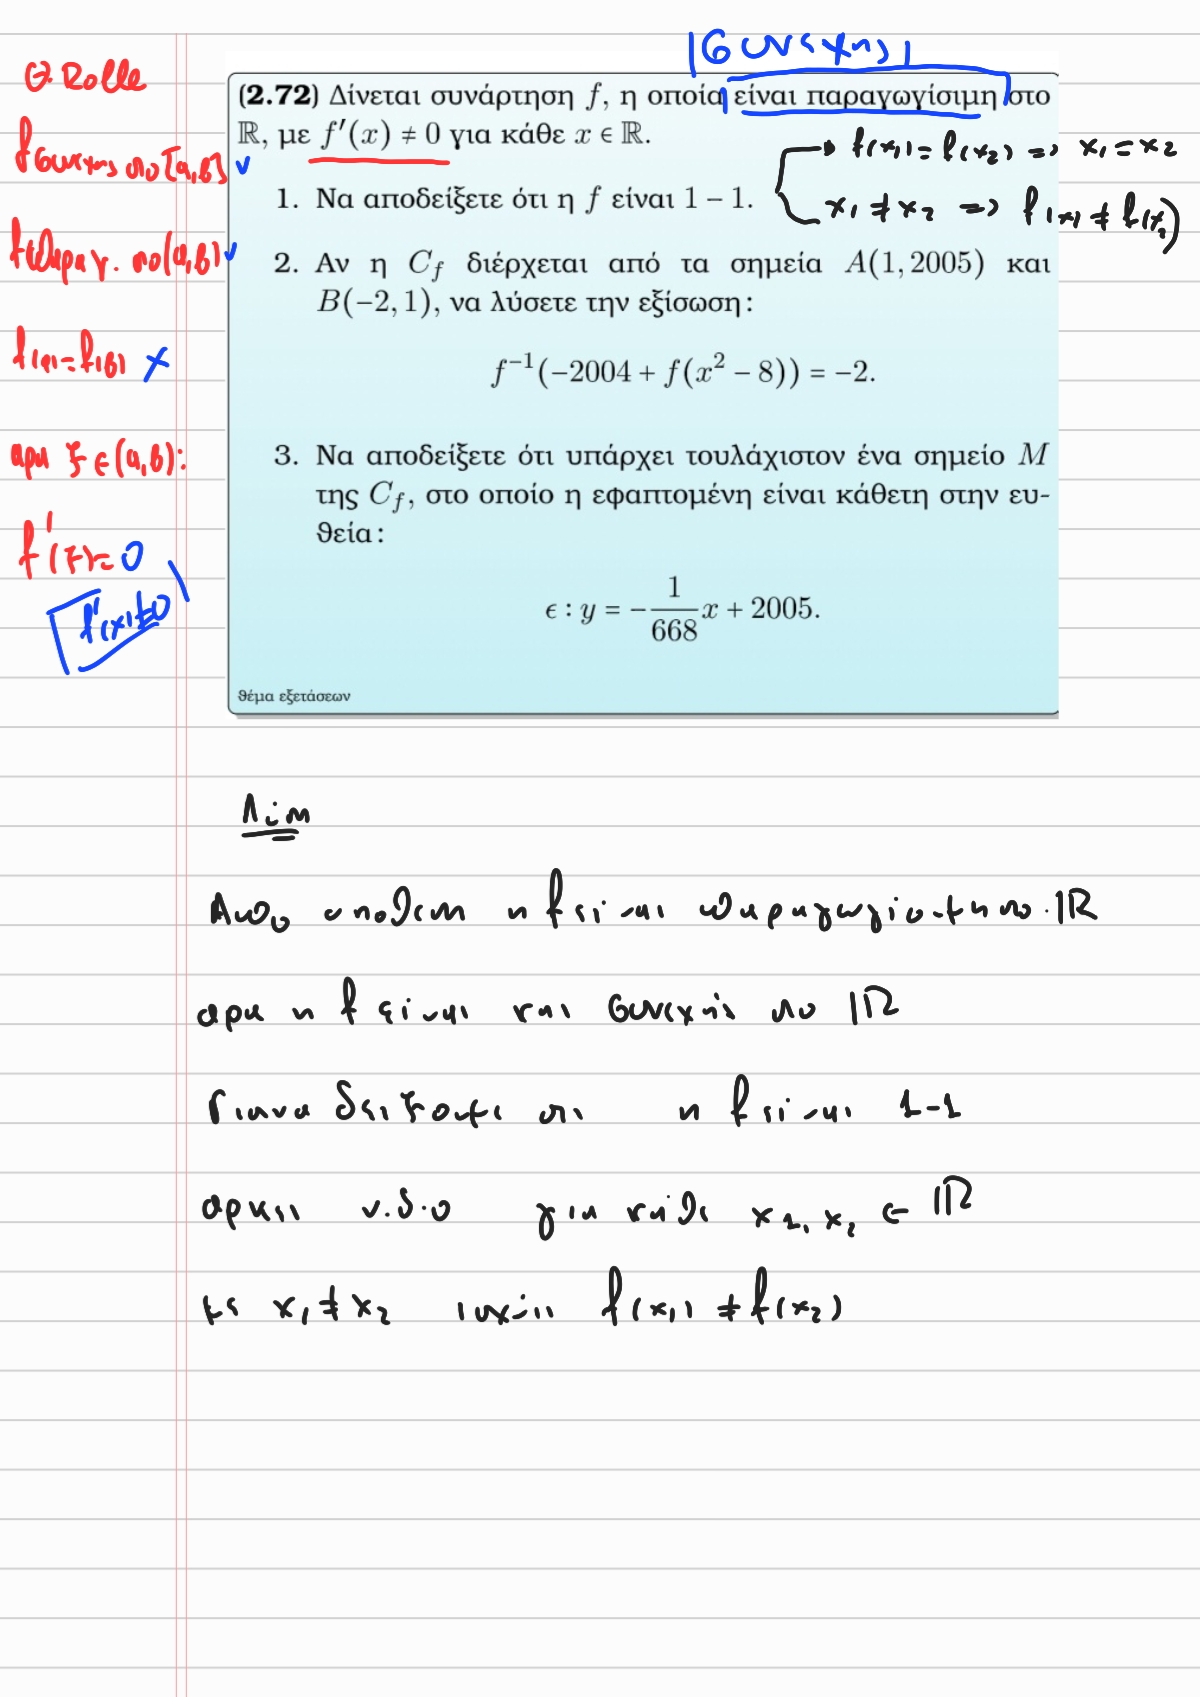 |συνεχης|
Θ. Rolle
f συνεχης στο [α,β] ✓
f παραγ. στο (α,β) ✓
f(α)=f(β) ✗
αρα ξ ∈ (α,β):
f'(ξ)=0
f'(x)≠0
(2.72) Δίνεται συνάρτηση f, η οποία είναι παραγωγίσιμη στο
ℝ, με f′(x) ≠ 0 για κάθε x ∈ ℝ.
→ f(x₁)=f(x₂) => x₁=x₂
x₁≠x₂ => f(x₁)≠f(x₂)
1. Να αποδείξετε ότι η f είναι 1 − 1.
2. Αν η C_f διέρχεται από τα σημεία A(1, 2005) και
B(−2, 1), να λύσετε την εξίσωση:
f⁻¹(−2004 + f(x² − 8)) = −2.
3. Να αποδείξετε ότι υπάρχει τουλάχιστον ένα σημείο M
της C_f, στο οποίο η εφαπτομένη είναι κάθετη στην ευ-
θεία:
ϵ : y = −1/668 x + 2005.
θέμα εξετάσεων
Λύση
Απο υποθεση η f είναι παραγωγίσιμη στο ℝ
αρα η f είναι και συνεχής στο ℝ
Για να δείξουμε οτι η f είναι 1-1
αρκει ν.δ.ο για κάθε x₁, x₂ ∈ ℝ
με x₁≠x₂ ισχύει f(x₁)≠f(x₂)